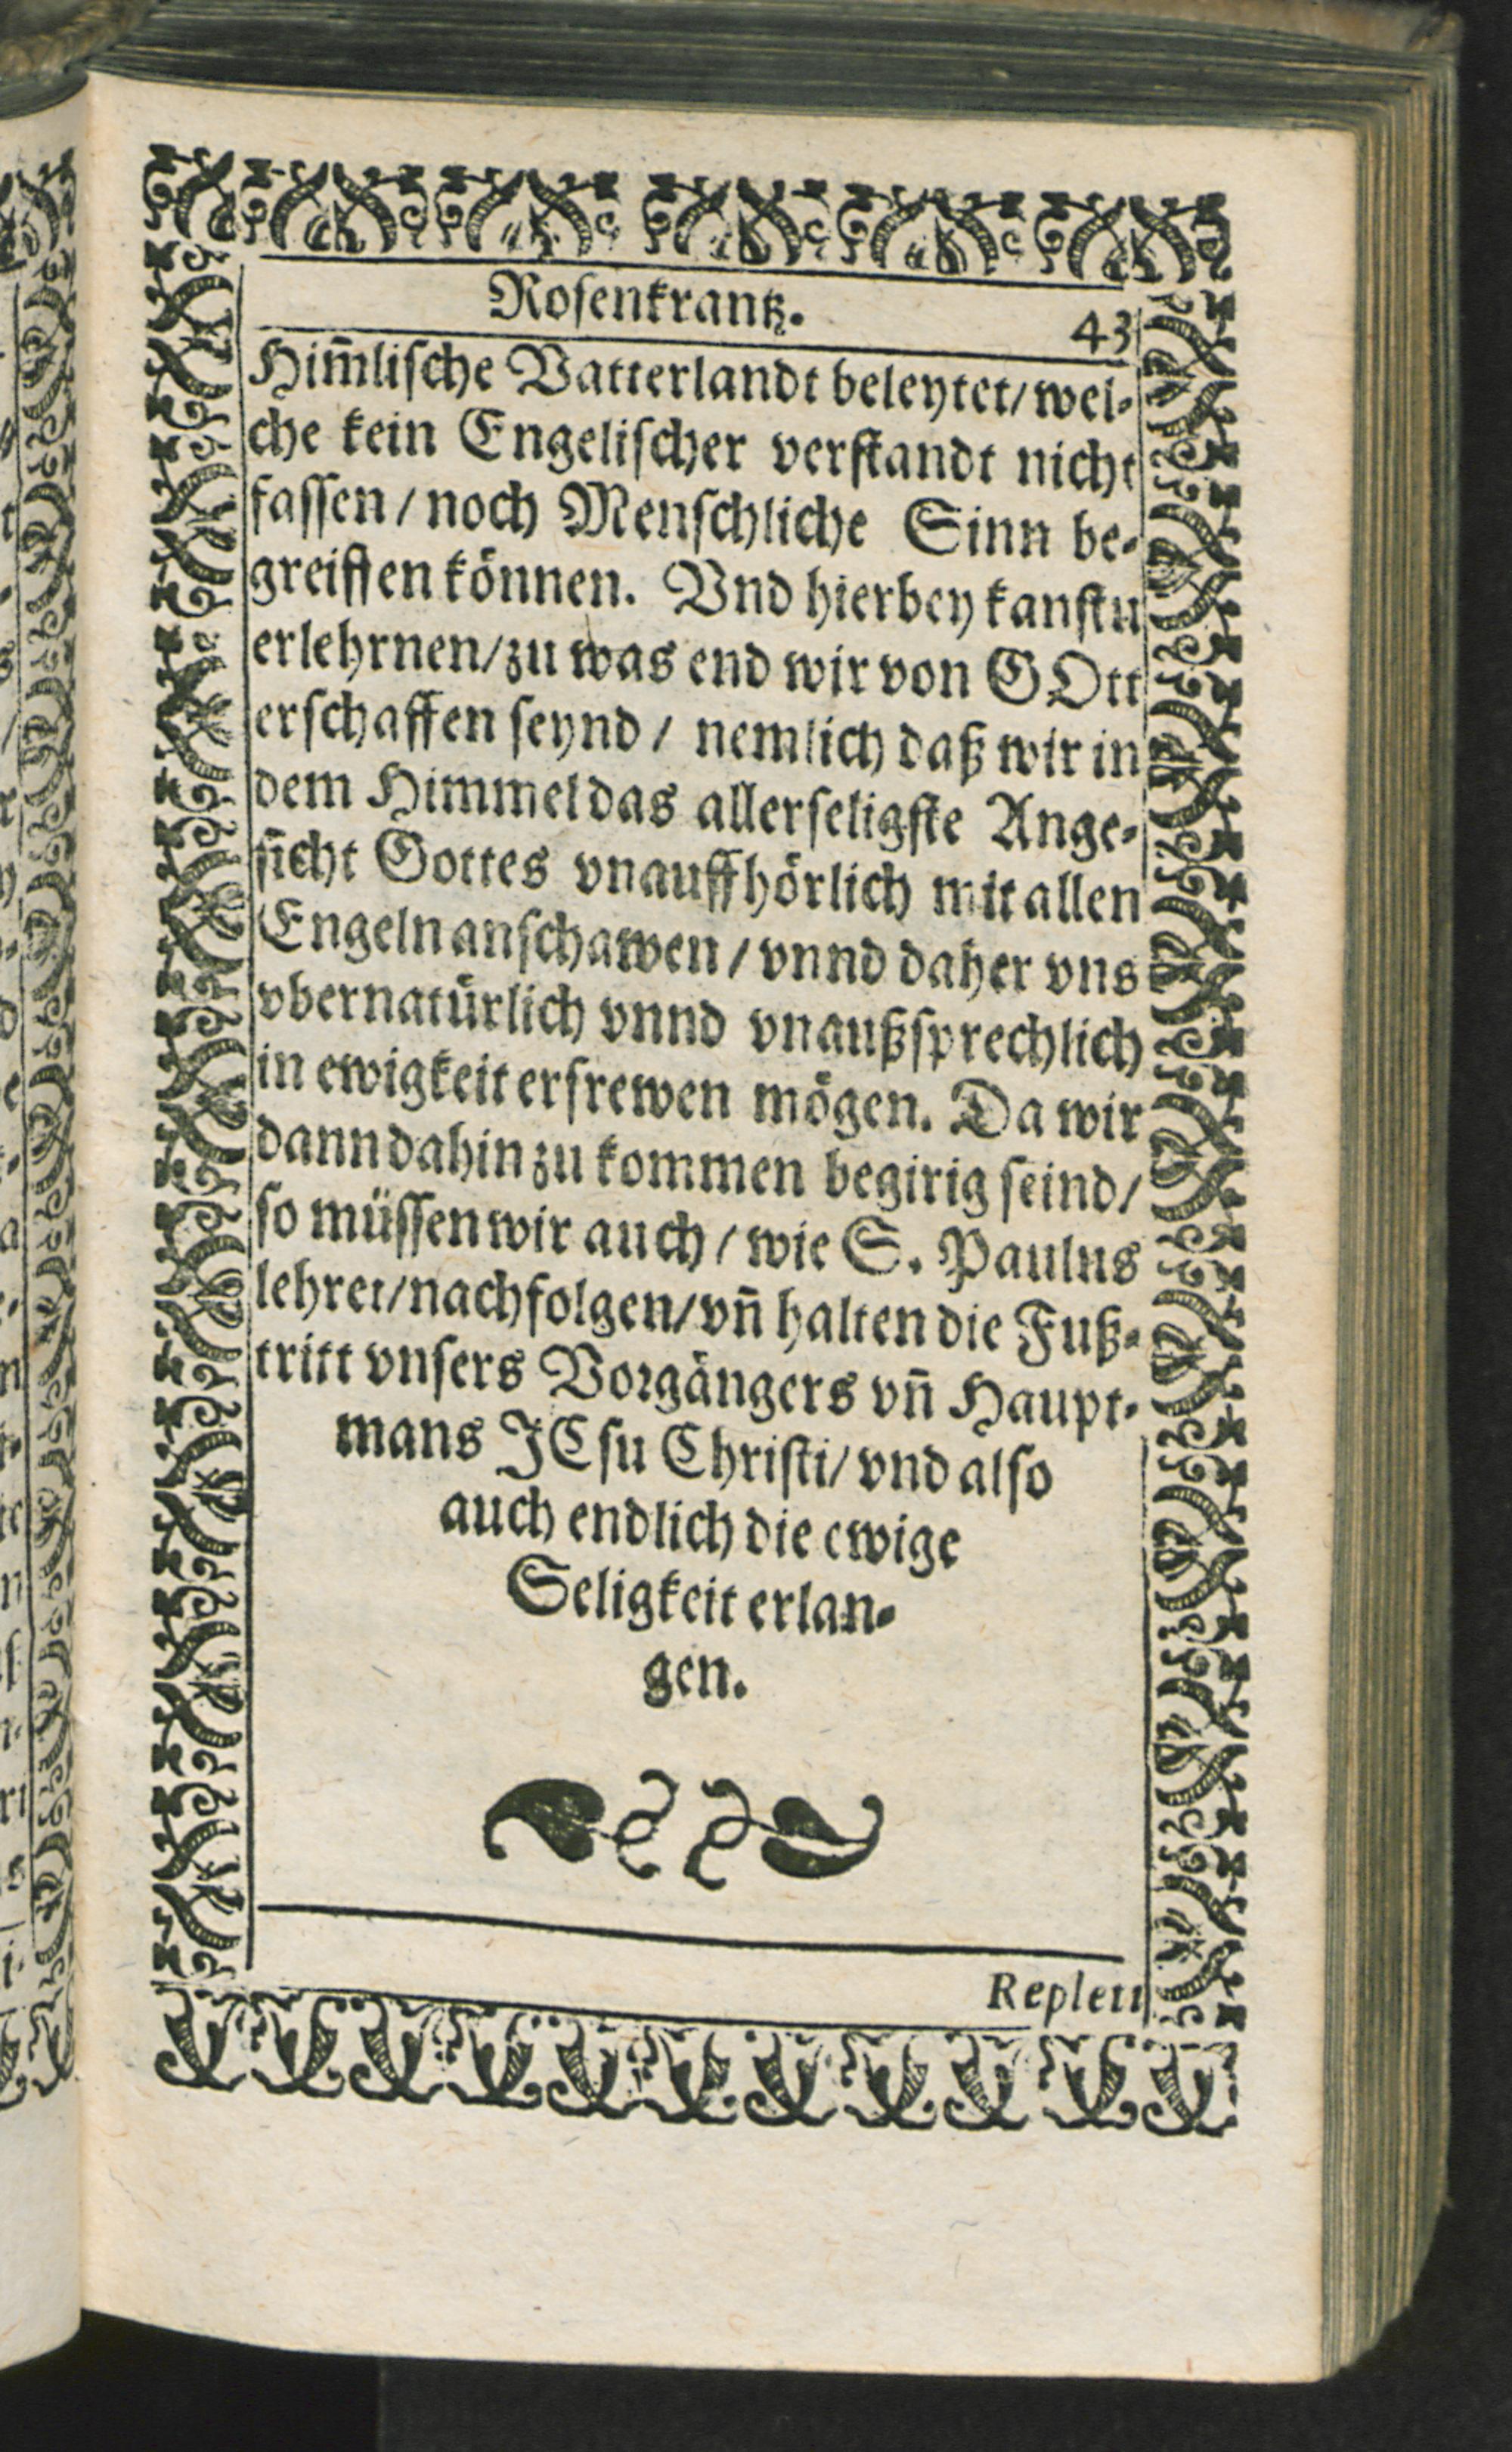 Rosenkrantz. 43
Him̃lische Vatterlandt beleytet/ wel-
che kein Engelischer verstandt nicht
fassen / noch Menschliche Sinn be-
greiffen können. Vnd hierbey kanstu
erlehrnen/zu was end wir von GOtt
erschaffen seynd / nemlich daß wir in
dem Himmel das allerseligste Ange-
sicht Gottes vnauffhörlich mit allen
Engeln anschawen / vnnd daher vns
vbernatürlich vnnd vnaußsprechlich
in ewigkeit erfrewen mögen. Da wir
dann dahin zu kommen begirig seind/
so müssen wir auch / wie S. Paulus
lehret/nachfolgen/vñ halten die Fuß-
tritt vnsers Vorgängers vñ Haupt-
mans JEsu Christi/ vnd also
auch endlich die ewige
Seligkeit erlan-
gen.
Repleti